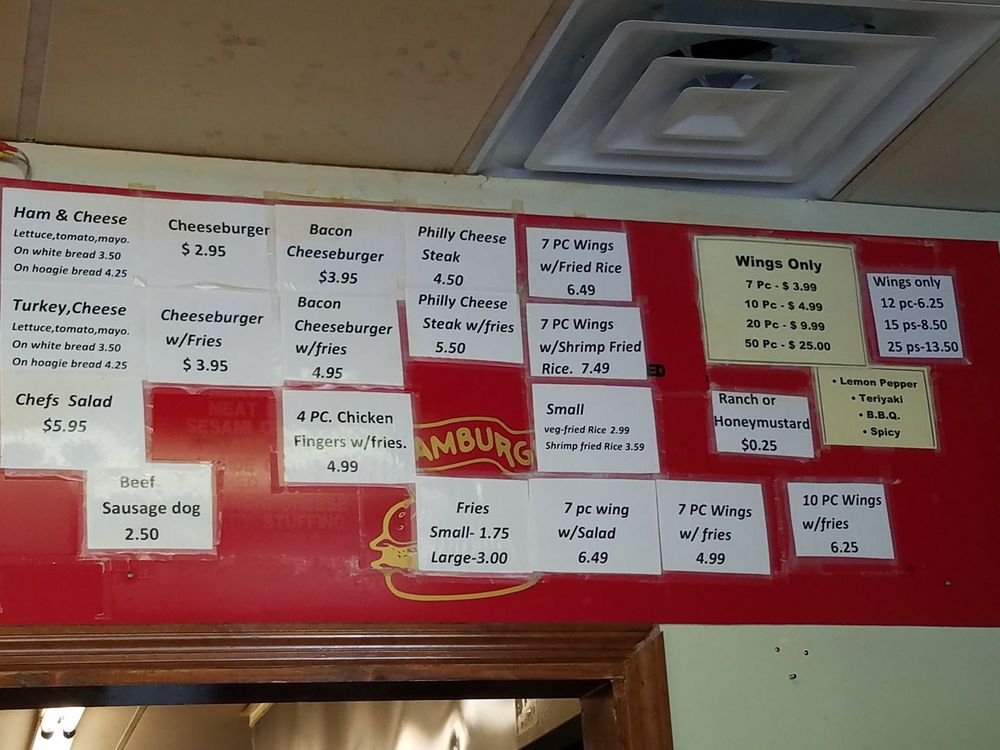 Ham & Cheese
Lettuce,tomato,mayo.
On white bread 3.50
On hoagie bread 4.25
Cheeseburger
$ 2.95
Bacon
Cheeseburger
$3.95
Philly Cheese
Steak
4.50
7 PC Wings
w/Fried Rice
6.49
Wings Only
7 Pc - $ 3.99
10 Pc - $ 4.99
20 Pc - $ 9.99
50 Pc - $ 25.00
Wings only
12 pc-6.25
15 ps-8.50
25 ps-13.50
Turkey,Cheese
Lettuce,tomato,mayo.
On white bread 3.50
On hoagie bread 4.25
Cheeseburger
w/Fries
$ 3.95
Bacon
Cheeseburger
w/fries
4.95
Philly Cheese
Steak w/fries
5.50
7 PC Wings
w/Shrimp Fried
Rice. 7.49
ED
Chefs Salad
$5.95
MEAT
4 PC. Chicken
Fingers w/fries.
4.99
AMBURG
Small
veg-fried Rice 2.99
Shrimp fried Rice 3.59
Ranch or
Honeymustard
$0.25
• Lemon Pepper
• Teriyaki
• B.B.Q.
• Spicy
Beef
Sausage dog
2.50
STUFFING
Fries
Small- 1.75
Large-3.00
7 pc wing
w/Salad
6.49
7 PC Wings
w/ fries
4.99
10 PC Wings
w/fries
6.25